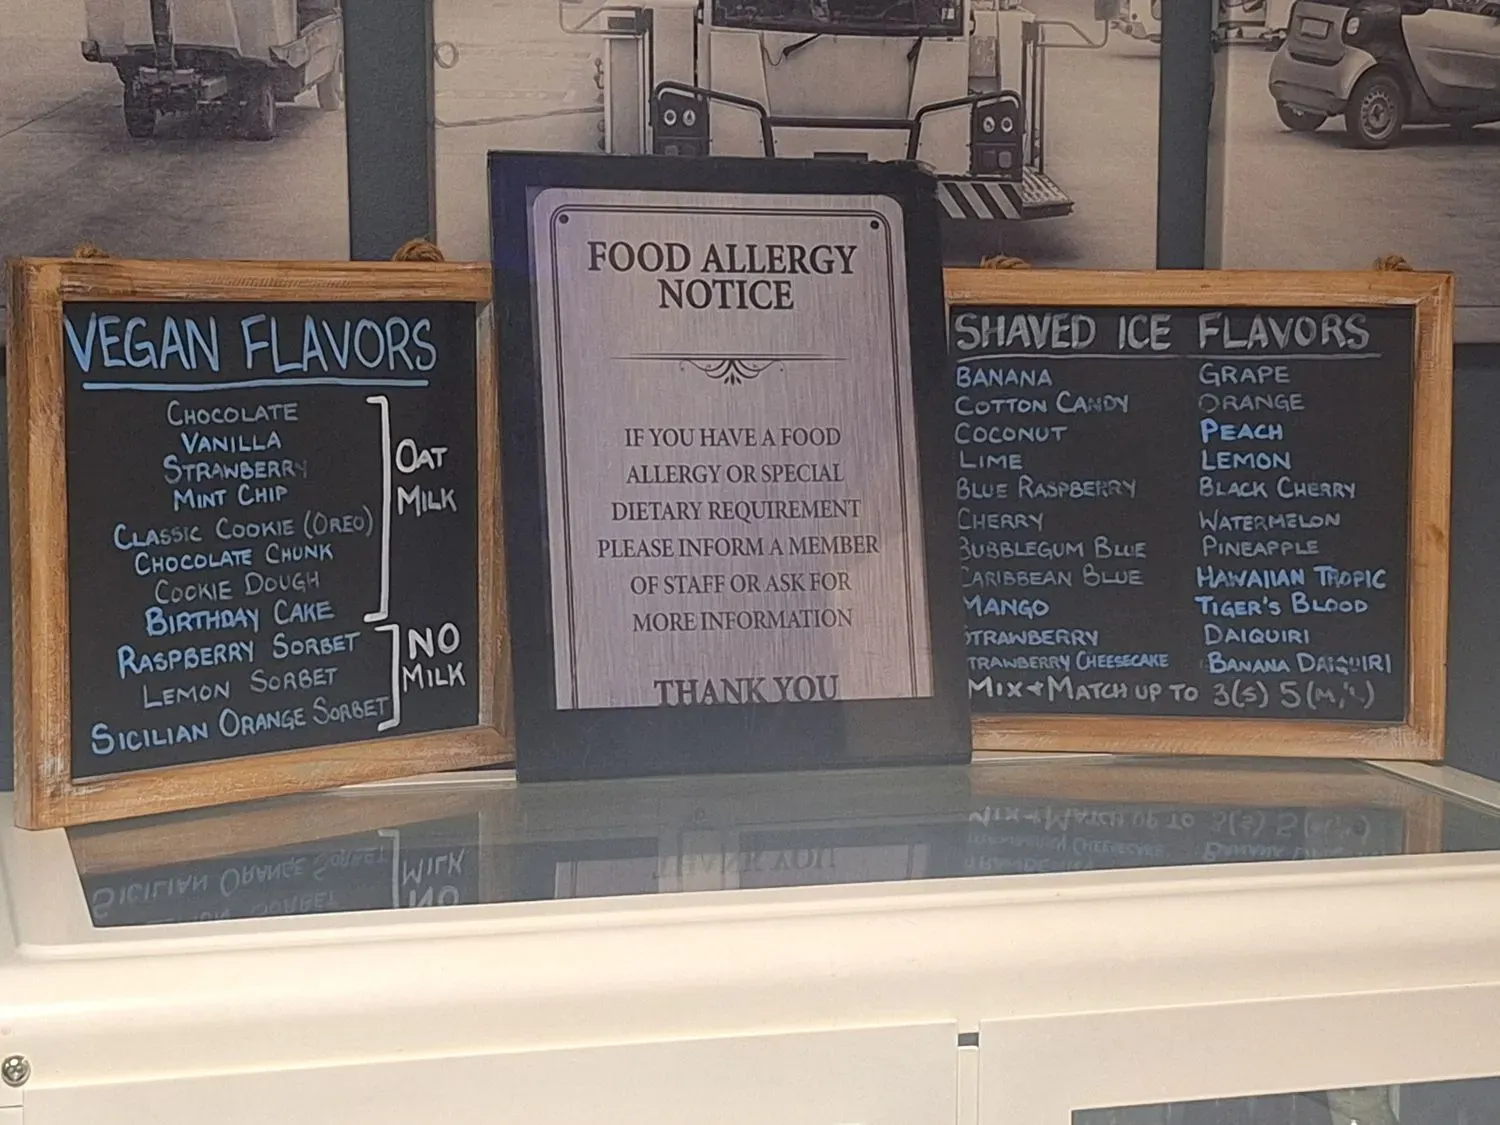 VEGAN FLAVORS
CHOCOLATE
VANILLA
STRAWBERRY
MINT CHIP
CLASSIC COOKIE (OREO)
CHOCOLATE CHUNK
COOKIE DOUGH
BIRTHDAY CAKE
OAT
MILK
RASPBERRY SORBET
LEMON SORBET
SICILIAN ORANGE SORBET
NO
MILK
FOOD ALLERGY
NOTICE
IF YOU HAVE A FOOD
ALLERGY OR SPECIAL
DIETARY REQUIREMENT
PLEASE INFORM A MEMBER
OF STAFF OR ASK FOR
MORE INFORMATION
THANK YOU
SHAVED ICE FLAVORS
BANANA
COTTON CANDY
COCONUT
LIME
BLUE RASPBERRY
CHERRY
BUBBLEGUM BLUE
CARIBBEAN BLUE
MANGO
STRAWBERRY
STRAWBERRY CHEESECAKE
GRAPE
ORANGE
PEACH
LEMON
BLACK CHERRY
WATERMELON
PINEAPPLE
HAWAIIAN TROPIC
TIGER'S BLOOD
DAIQUIRI
BANANA DAIQUIRI
MIX + MATCH UP TO 3(S)